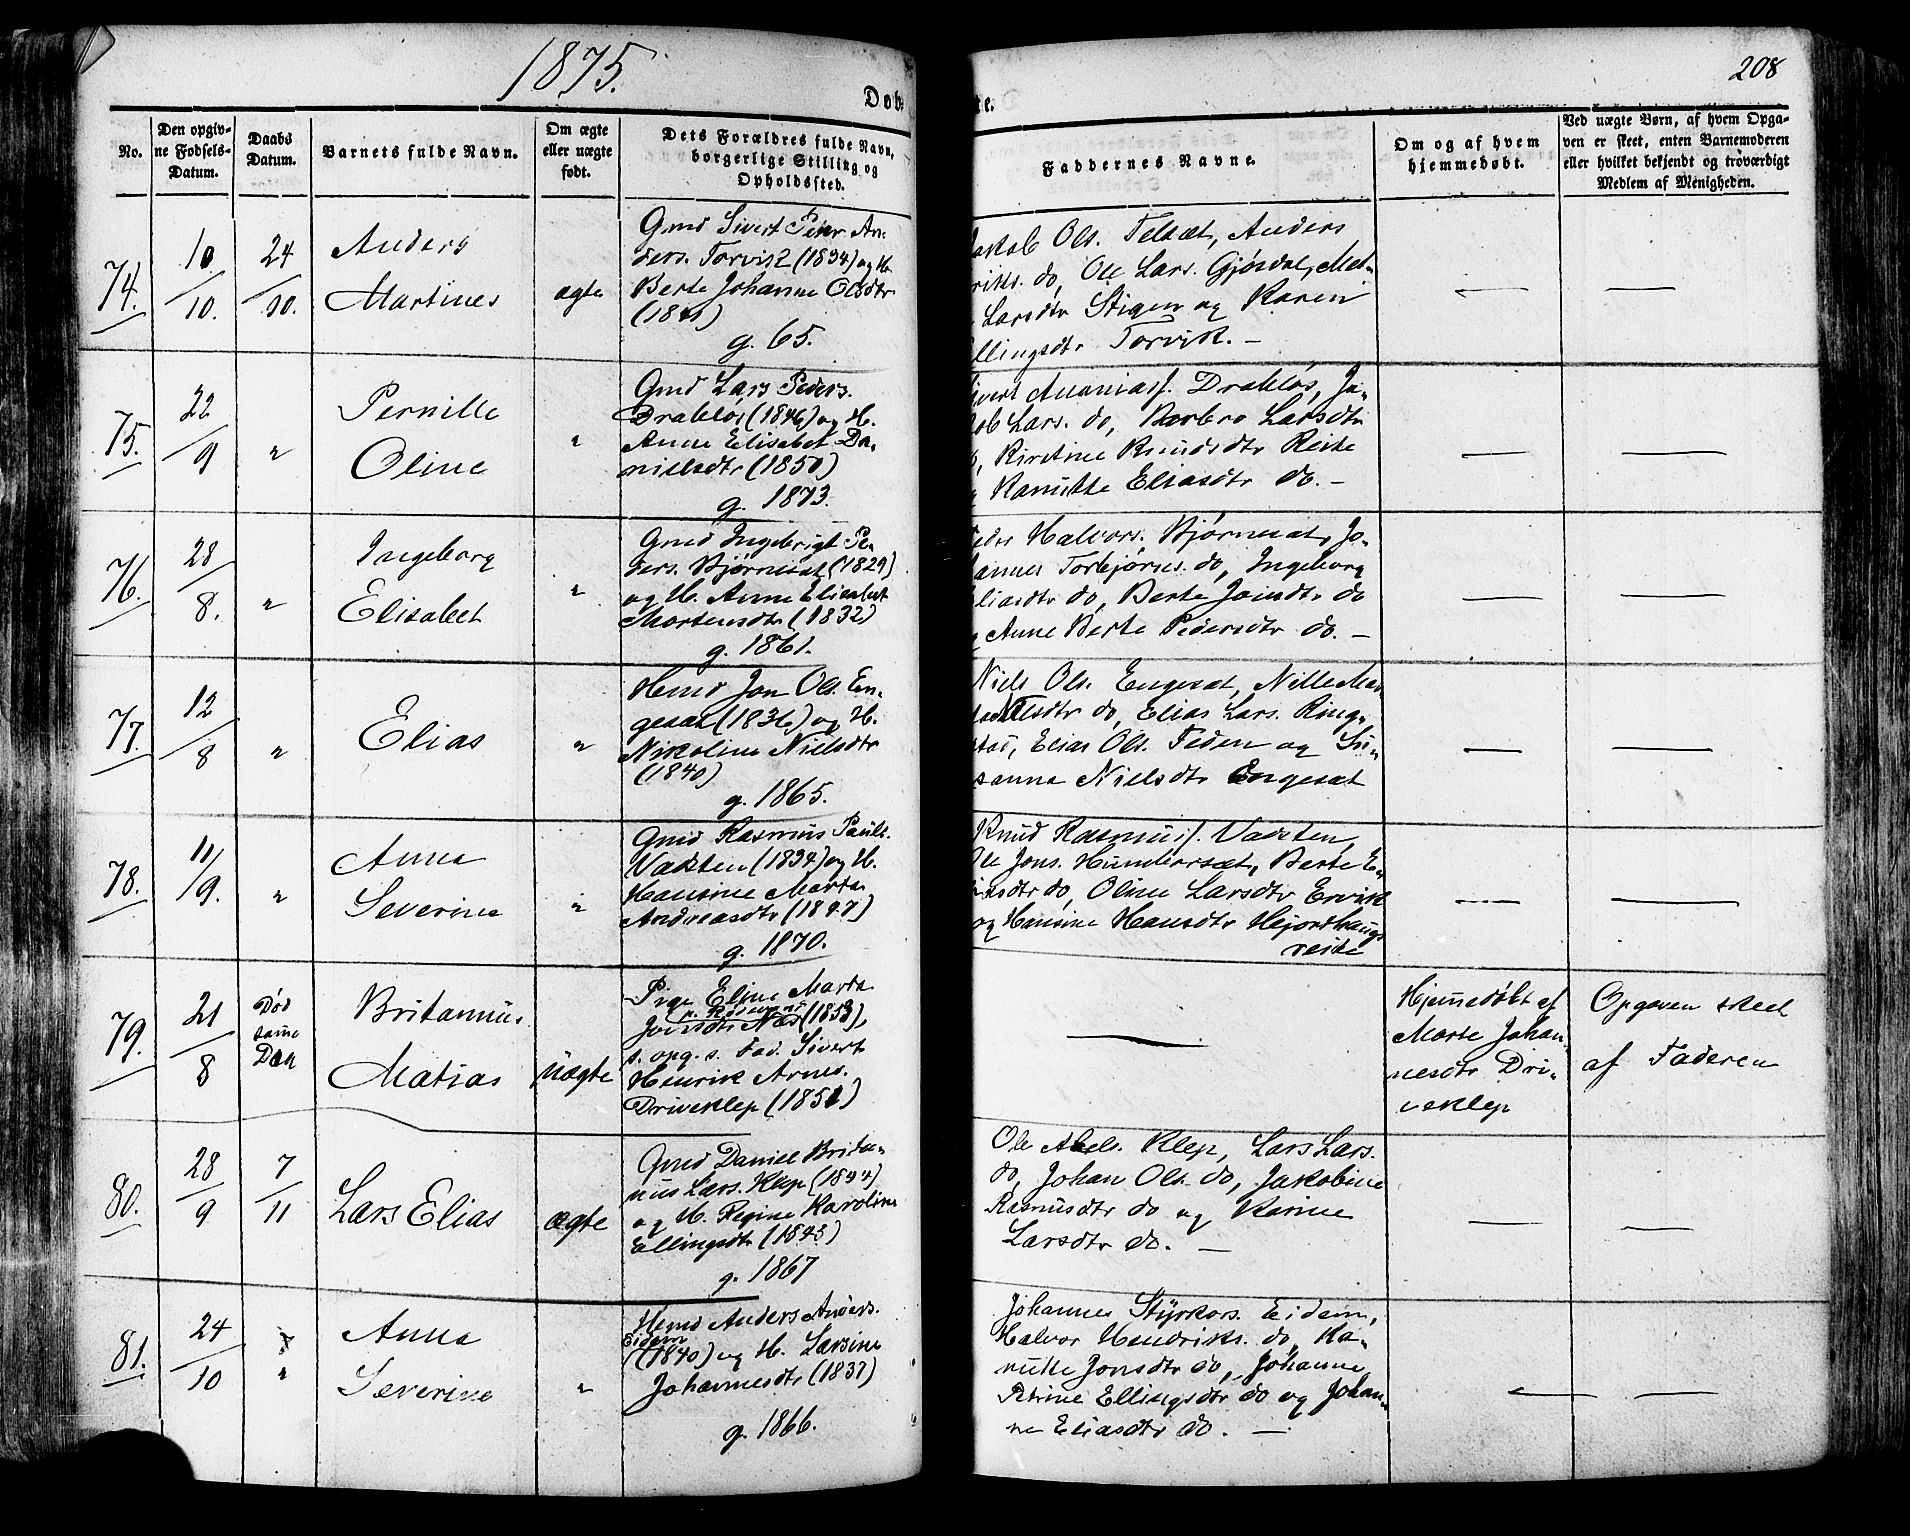 1875.
208
Døb-
te.
No.
Den opgiv-
ne Fødsels-
Datum.
Daabs
Datum.
Barnets fulde Navn.
Om ægte
eller uægte
født.
Dets Forældres fulde Navn,
borgerlige Stilling og
Opholdssted.
Faddernes Navne.
Om og af hvem
hjemmedøbt.
Ved uægte Børn, af hvem Opga-
ven er skeet, enten Barnemoderen
eller hvilket bekjendt og troværdigt
Medlem af Menigheden.
74.
10/10.
24/10.
Anders
Martines
ægte
Gmd Sivert Peter An-
ders. Torvik (1834) og H.
Berte Johanne Olsdtr
g. 65.
Jakob Ols. Telsæt, Anders
riks. do, Ole Lars. Gjøsdal, Mal-
Larsdtr Stigen og Karen
llingsdtr Torvik. —
75.
22/9
"
Pernille
Oline
"
Gmd Lars Peders.
Drabløs (1846) og H.
Anne Elisabet Da-
nielsdtr (1850)
g. 1873.
ivert Ananiass. Drabløs, Ja-
ob Lars. do, Barbro Larsdtr
, Kirstine Knudsdtr Reite
g Kanutte Eliasdtr do. —
76.
28/8.
"
Ingeborg
Elisabet
"
Gmd Ingebrigt Pe-
ders. Bjørnsæt (1829)
og H. Anne Elisabet
Mortensdtr (1832)
g. 1861.
eder Halvors. Bjørnsæt, Jo-
annes Torbjørns. do, Ingeborg
liasdtr do, Berte Jonsdtr do
g Anne Berte Pedersdtr do. —
77.
12/8
"
Elias
"
Hmd Jon Ols. En-
gesæt (1836) og H.
Nikoline Nielsdtr
(1840)
g. 1865.
Niels Ols. Engesæt, Nille Ma-
lsdtr do, Elias Lars. Ring-
stad, Elias Ols. Feden og Su-
sanna Nielsdtr Engesæt
78.
11/9.
"
Anna
Severine
"
Gmd Rasmus Pauls.
Vadsten (1834) og H.
Hansine Marta
Andreasdtr (1847)
g. 1870.
Knud Rasmuss. Vadsten,
Ole Jons. Humborsæt, Berte E-
sdtr do, Oline Larsdtr Ervik
og Hansine Hansdtr Hjorthaugs
reite
79.
21/8
Død
same
Dag
Britannus
Matias
uægte
Pige Eline Marta
Jonsdtr Næs (1853),
s. opg. s. Fad. Sivert
Henrik Arnes.
Driveklep (1851)
—
Hjemmedøbt af
Marte Johan-
nesdtr Dri-
veklep
Opgaven skeet
af Faderen
80.
28/9
7/11
Lars Elias
ægte
Gmd Daniel Brita-
nus Lars. Klep (1844)
og H. Regine Karoline
Ellingsdtr (1843)
g. 1867
Ole Abels. Klep, Lars Lars.
do, Johan Ols. do, Jakobine
Rasmusdtr do og Karine
Larsdtr do. —
81.
24/10
"
Anna
Severine
"
Hmd Anders Anders.
Eidem
(1840) og H. Larsine
Johannesdtr (1837)
g. 1866.
Johannes Styrkors. Eidem,
Halvor Hendriks. do, Ka-
nutte Jonsdtr do, Johanne
Petrine Ellingsdtr do og Johan-
ne Eliasdtr do. —